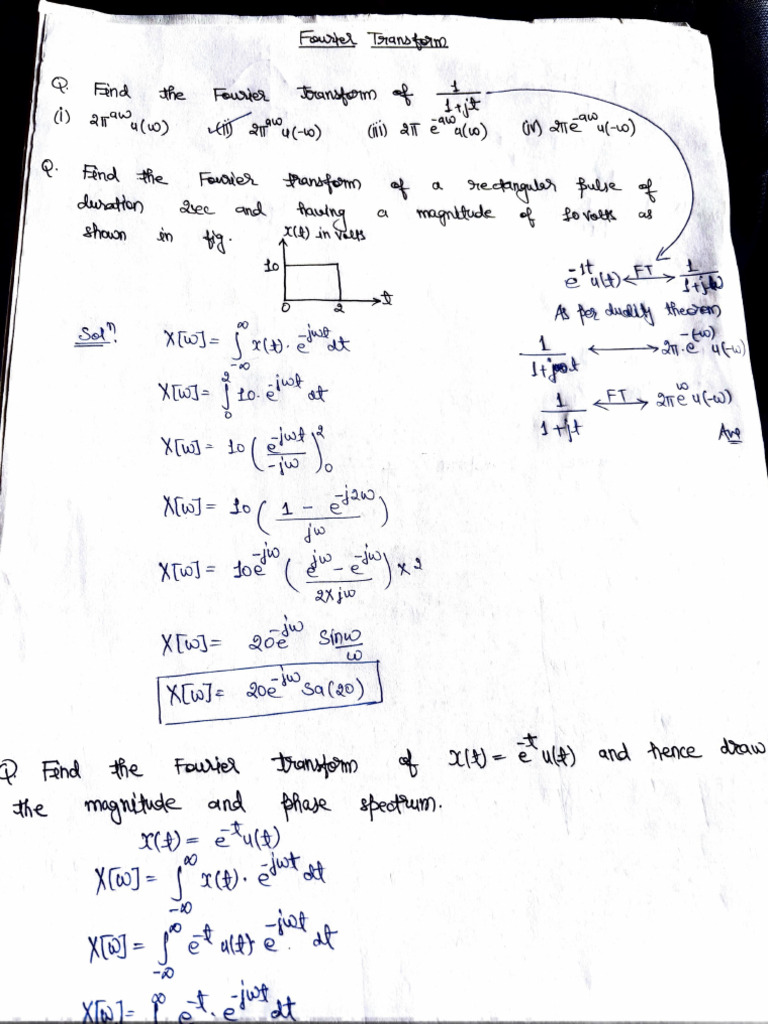 Fourier Transform
Q. Find the Fourier transform of 1/(1+jt)
(i) 2π^{aω} u(ω) (ii) 2π^{aω} u(-ω) (iii) 2π e^{-aω} u(ω) (iv) 2π e^{-aω} u(-ω)
Q. Find the Fourier transform of a rectangular pulse of
duration 2sec and having a magnitude of 10 volts as
shown in fig.
x(t) in volts
10
0 2 t
e^{-1t} u(t) ←FT→ 1/(1+jω)
As per duality theorem
1/(1+jt) ←→ 2π·e^{-(-ω)} u(-ω)
1/(1+jt) ←FT→ 2π e^{ω} u(-ω)
Ans
Solⁿ.
X[ω] = ∫_{-∞}^{∞} x(t)·e^{-jωt} dt
X[ω] = ∫_{0}^{2} 10·e^{-jωt} dt
X[ω] = 10 (e^{-jωt}/-jω)_{0}^{2}
X[ω] = 10 (1 - e^{-j2ω}/jω)
X[ω] = 10e^{-jω} (e^{jω} - e^{-jω}/2×jω) × 2
X[ω] = 20e^{-jω} Sinω/ω
X[ω] = 20e^{-jω} Sa(20)
Q. Find the Fourier transform of x(t) = e^{-t} u(t) and hence draw
the magnitude and phase spectrum.
x(t) = e^{-t} u(t)
X[ω] = ∫_{-∞}^{∞} x(t)·e^{-jωt} dt
X[ω] = ∫_{-∞}^{∞} e^{-t} u(t) e^{-jωt}·dt
X[ω] = ∫^{∞} e^{-t}·e^{-jωt} dt